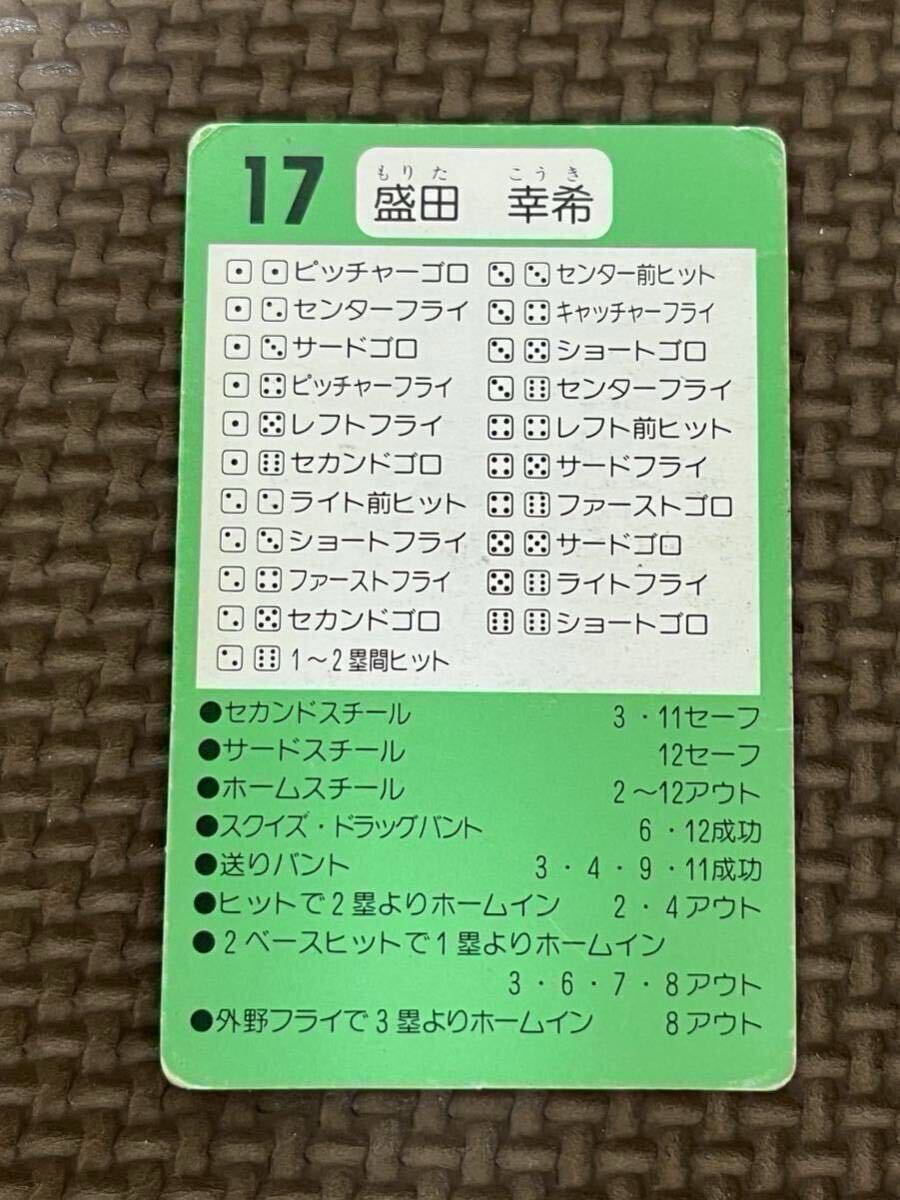 17
もりた こうき
盛田 幸希
⚀ ⚀ ピッチャーゴロ
⚀ ⚁ センターフライ
⚀ ⚂ サードゴロ
⚀ ⚃ ピッチャーフライ
⚀ ⚄ レフトフライ
⚀ ⚅ セカンドゴロ
⚁ ⚁ ライト前ヒット
⚁ ⚂ ショートフライ
⚁ ⚃ ファーストフライ
⚁ ⚄ セカンドゴロ
⚁ ⚅ 1～2塁間ヒット
⚂ ⚂ センター前ヒット
⚂ ⚃ キャッチャーフライ
⚂ ⚄ ショートゴロ
⚂ ⚅ センターフライ
⚃ ⚃ レフト前ヒット
⚃ ⚄ サードフライ
⚃ ⚅ ファーストゴロ
⚄ ⚄ サードゴロ
⚄ ⚅ ライトフライ
⚅ ⚅ ショートゴロ
●セカンドスチール 3・11セーフ
●サードスチール 12セーフ
●ホームスチール 2～12アウト
●スクイズ・ドラッグバント 6・12成功
●送りバント 3・4・9・11成功
●ヒットで2塁よりホームイン 2・4アウト
●2ベースヒットで1塁よりホームイン
3・6・7・8アウト
●外野フライで3塁よりホームイン 8アウト